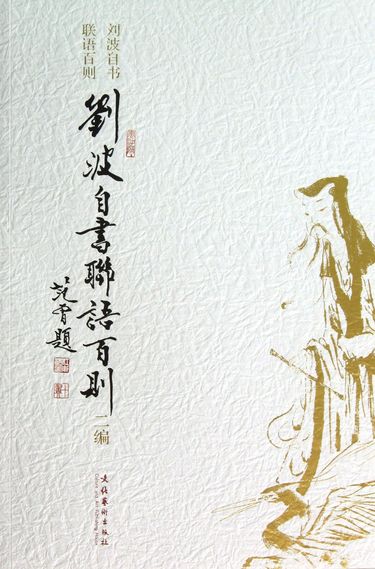 刘波自书
联语百则
劉波自書聯語百則
二编
范曾題
文化藝術出版社
Culture and Art Publishing House